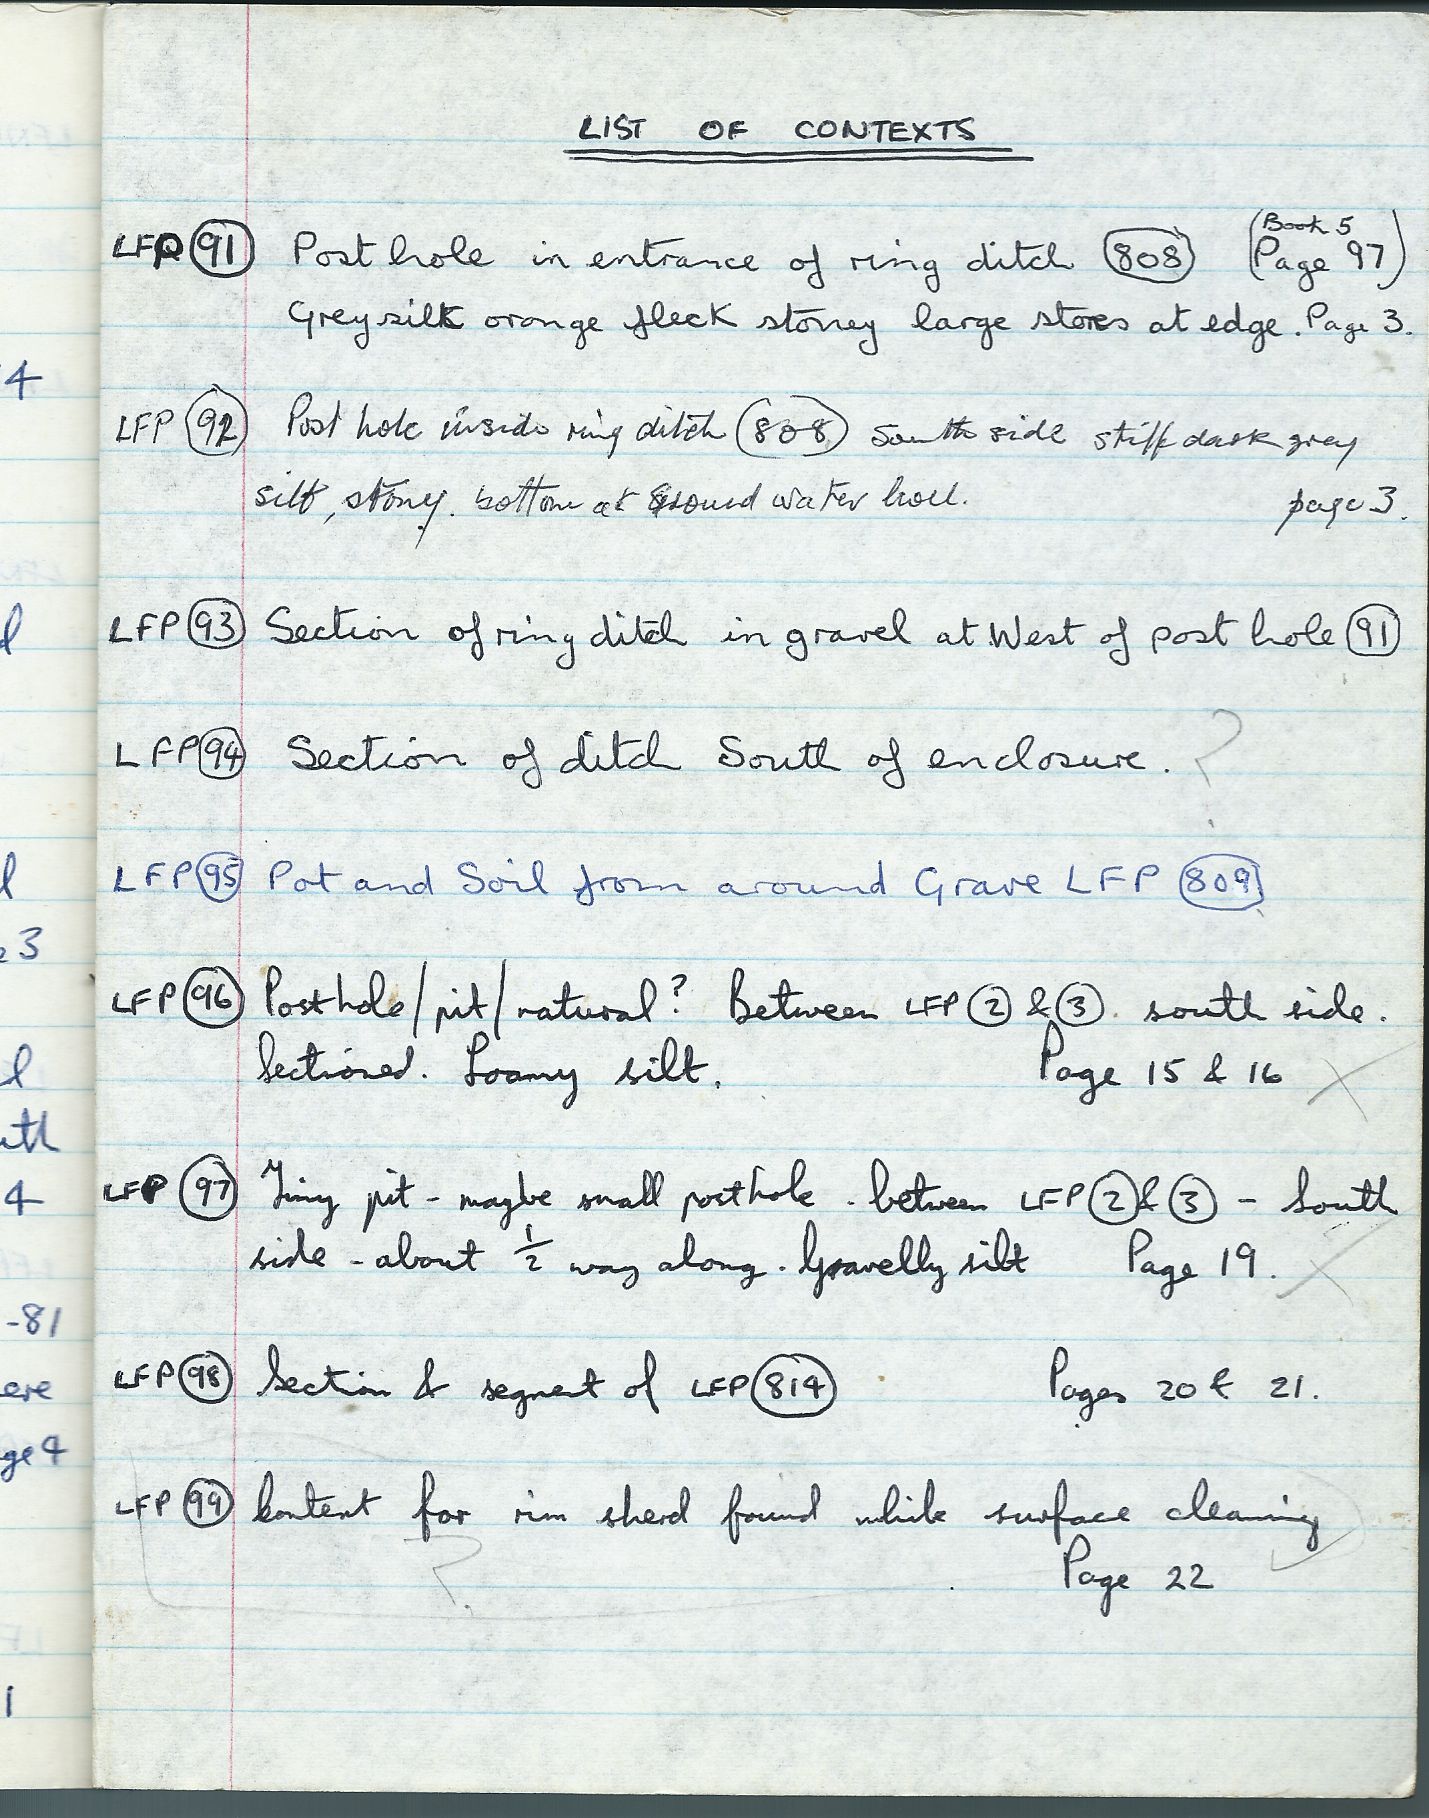 LIST OF CONTEXTS
LFP 91 Post hole in entrance of ring ditch 808 (Book 5 Page 97)
Grey silt orange fleck stoney large stones at edge. Page 3.
LFP 92 Post hole inside ring ditch 808 South side stiff dark grey
silt, stony. bottom at ground water level. page 3.
LFP 93 Section of ring ditch in gravel at West of post hole 91
LFP 94 Section of ditch South of enclosure. ?
LFP 95 Pot and Soil from around Grave LFP 809
LFP 96 Posthole/pit/natural? Between LFP 2 & 3. south side.
Sectioned. Loamy silt. Page 15 & 16
LFP 97 Tiny pit - maybe small posthole - between LFP 2 & 3 - South
side - about 1/2 way along. Gravelly silt Page 19.
LFP 98 Section & segment of LFP 814 Pages 20 & 21.
LFP 99 Context for rim sherd found while surface cleaning
Page 22
?
4
e 3
uth
4
-81
ere
ge 4
1